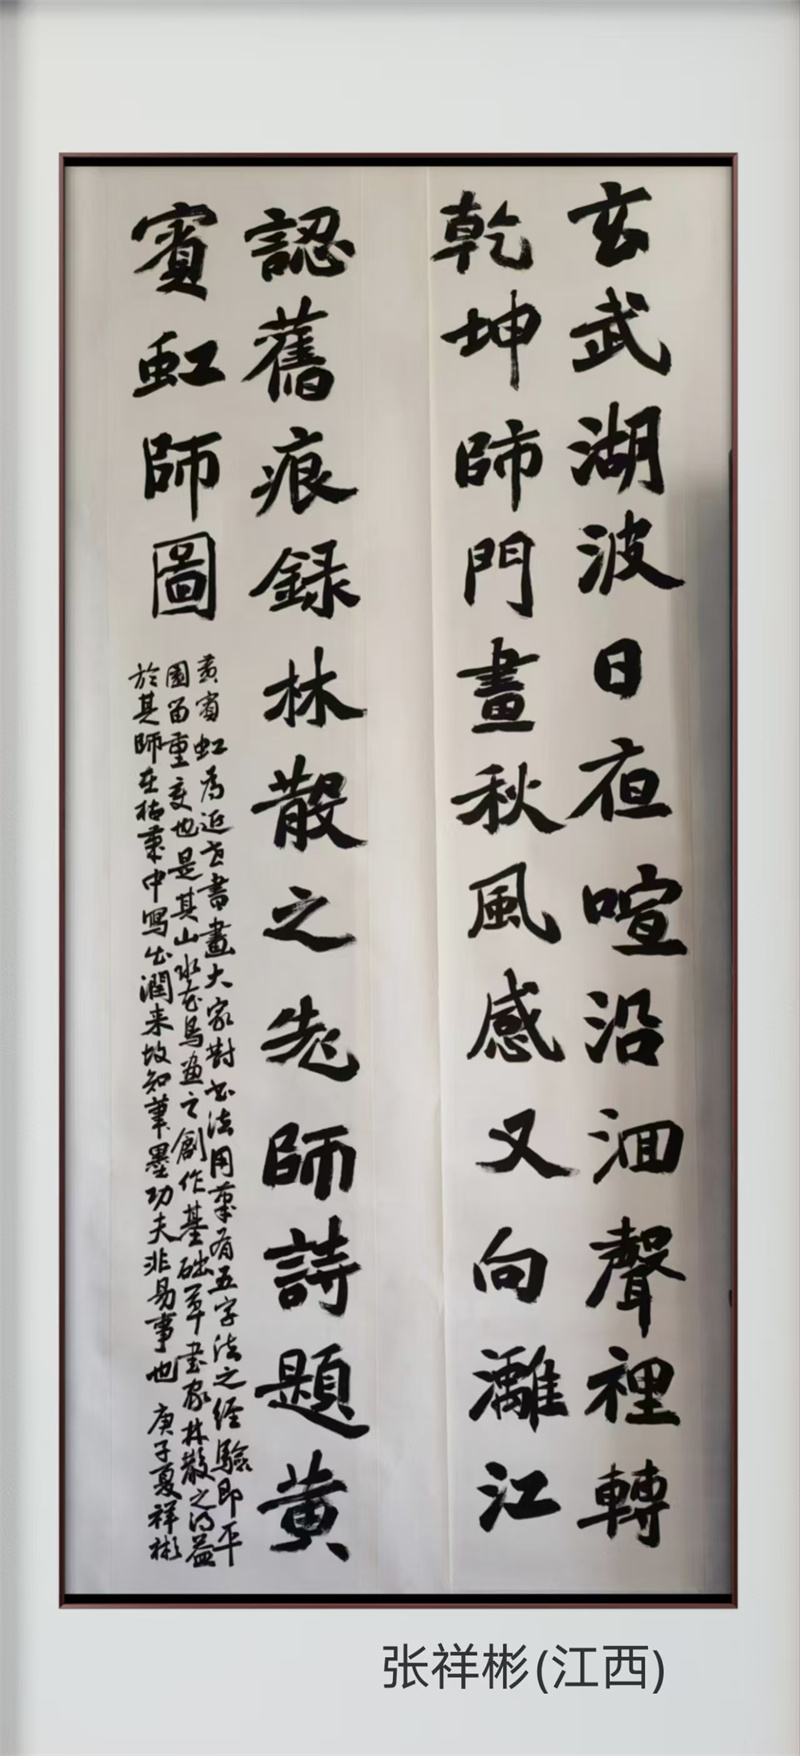 玄武湖波日夜喧沿洄聲裡轉
乾坤師門畫秋風感又向灕江
認舊痕録林散之先師詩題黄
賓虹師圖
黄賓虹為近世書畫大家對書法用筆有五字法之經驗即平
圓留重变也是其山水花鳥畫之創作基础草書家林散之得益
於其師在枯筆中寫出潤来故知筆墨功夫非易事也 庚子夏祥彬
张祥彬(江西)